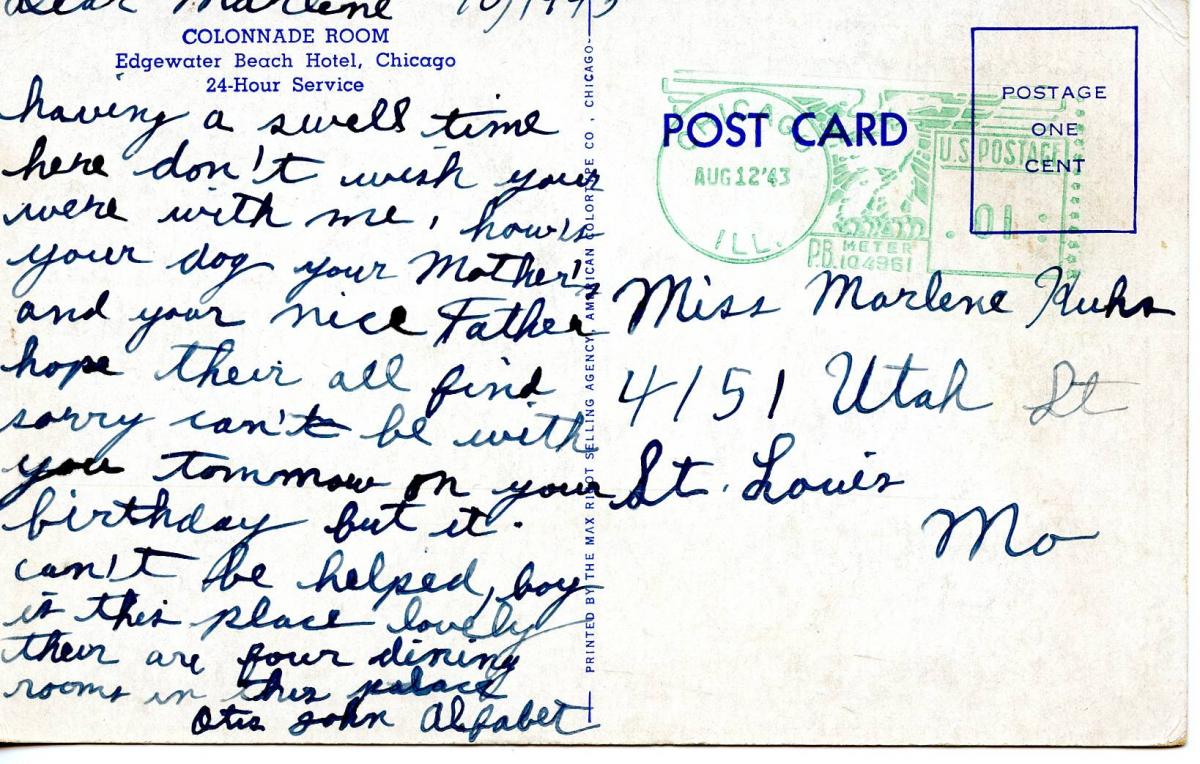 Dear Marlene 10/1943
COLONNADE ROOM
Edgewater Beach Hotel, Chicago
24-Hour Service
having a swell time
here don't wish your
were with me, how's
your dog your Mother's
and your nice Father
hope their all find
sorry can't be with
you tommow on your
birthday but it
can't be helped, boy
is this place lovely
their are four dining
rooms in this palace
Otis John Alfabet
PRINTED BY THE MAX RIGOT SELLING AGENCY, AMERICAN COLORTYPE CO., CHICAGO
POST CARD
CHICAGO
AUG 12 '43
ILL.
U.S. POSTAGE
.01
P.B. METER
104961
POSTAGE
ONE
CENT
Miss Marlene Kuhs
4151 Utah St
St. Louis
Mo